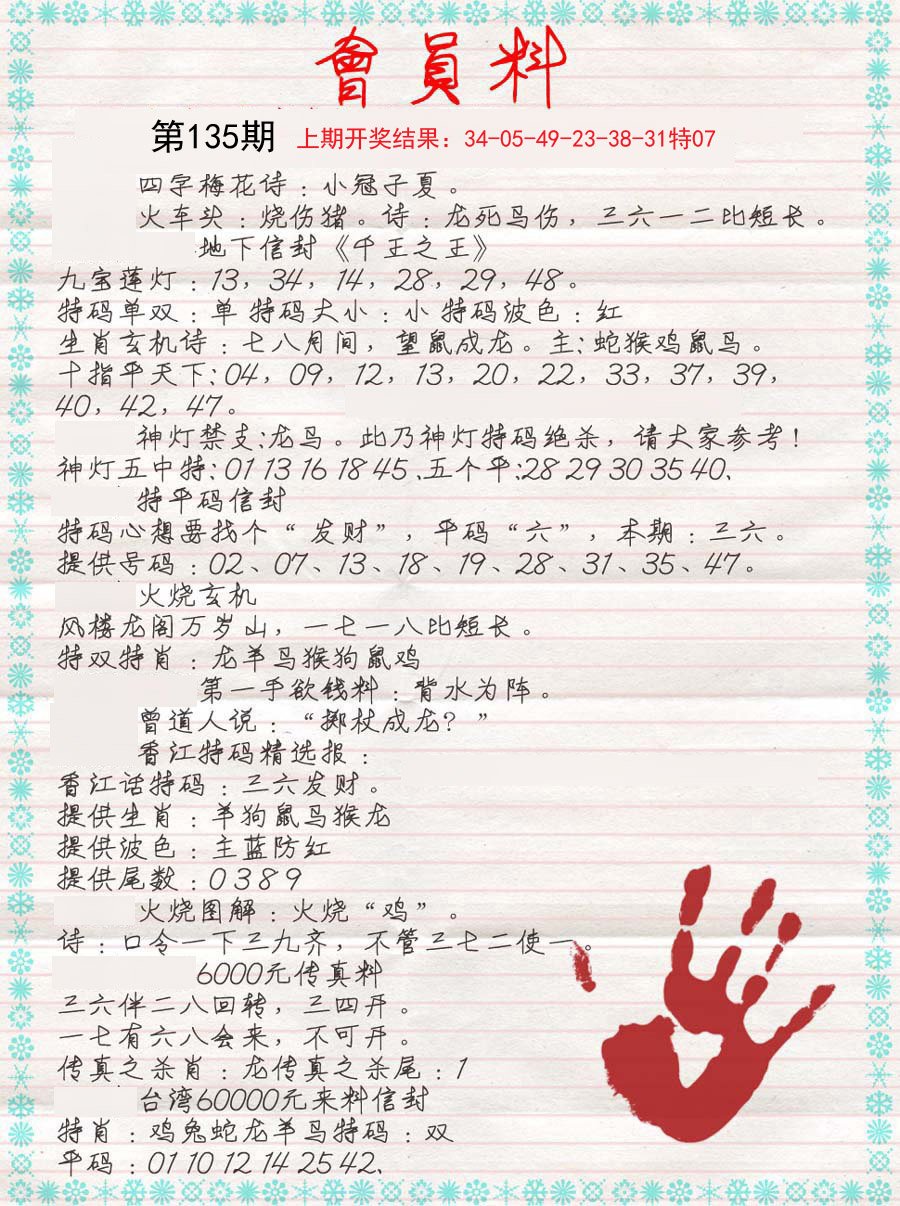 會員料
第135期 上期开奖结果：34-05-49-23-38-31特07
四字梅花诗：小冠子夏。
火车头：烧伤猪。诗：龙死鸟伤，三六一二比短长。
地下信封《千王之王》
九宝莲灯：13，34，14，28，29，48。
特码单双：单 特码大小：小 特码波色：红
生肖玄机诗：七八月间，望鼠成龙。主：蛇猴鸡鼠马。
十指平天下：04，09，12，13，20，22，33，37，39，
40，42，47。
神灯禁支:龙马。此乃神灯特码绝杀，请大家参考！
神灯五中特：01 13 16 18 45、五个平：28 29 30 35 40、
特平码信封
特码心想要找个“发财”，平码“六”，本期：三六。
提供号码：02、07、13、18、19、28、31、35、47。
火烧玄机
风楼龙阁万岁山，一七一八比短长。
特双特肖：龙羊马猴狗鼠鸡
第一手欲钱料：背水为阵。
曾道人说：“掷杖成龙？”
香江特码精选报：
香江话特码：三六发财。
提供生肖：羊狗鼠马猴龙
提供波色：主蓝防红
提供尾数：0 3 8 9
火烧图解：火烧“鸡”。
诗：口令一下三九齐，不管三七二使一。
6000元传真料
三六伴二八回转，三四开。
一七有六八会来，不可开。
传真之杀肖：龙传真之杀尾：1
台湾60000元来料信封
特肖：鸡兔蛇龙羊马特码：双
平码：01 10 12 14 25 42、